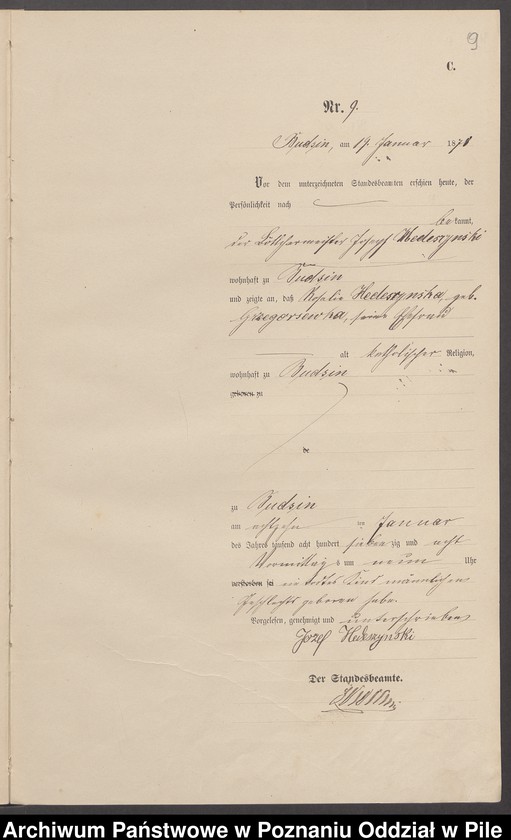 9
C.
Nr. 9.
Budzin, am 19. Januar 1878
Vor dem unterzeichneten Standesbeamten erschien heute, der
Persönlichkeit nach
bekannt,
der Böttchermeister Joseph Hedeszynski
wohnhaft zu Budzin
und zeigte an, daß Rosalie Hedeszynska, geb.
Grzegorzewska, seine Ehefrau
alt katholischer Religion,
wohnhaft zu Budzin
geboren zu
zu Budzin
am achtzehn ten Januar
des Jahres tausend acht hundert siebenzig und acht
Vormittags um neun Uhr
verstorben sei ein todtes Kind männlichen
Geschlechts geboren habe.
Vorgelesen, genehmigt und unterschrieben
Józef Hedeszynski
Der Standesbeamte.
Archiwum Państwowe w Poznaniu Oddział w Pile